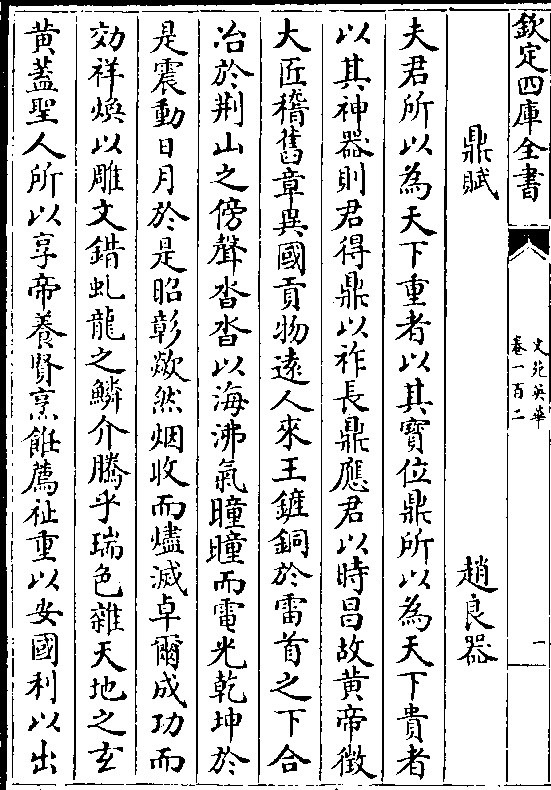 欽定四庫全書
文苑英華
卷一百二
一
鼎賦
趙良器
夫君所以為天下重者以其寶位鼎所以為天下貴者
以其神器則君得鼎以祚長鼎應君以時昌故黄帝徴
大匠稽舊章異國貢物遠人來王鏟銅於雷首之下合
冶於荆山之傍聲沓沓以海沸氣曈曈而電光乾坤於
是震動日月於是昭彰歘然烟收而燼滅卓爾成功而
効祥煥以雕文錯虬龍之鱗介騰乎瑞色雜天地之玄
黄蓋聖人所以享帝養賢烹飪薦祉重以安國利以出